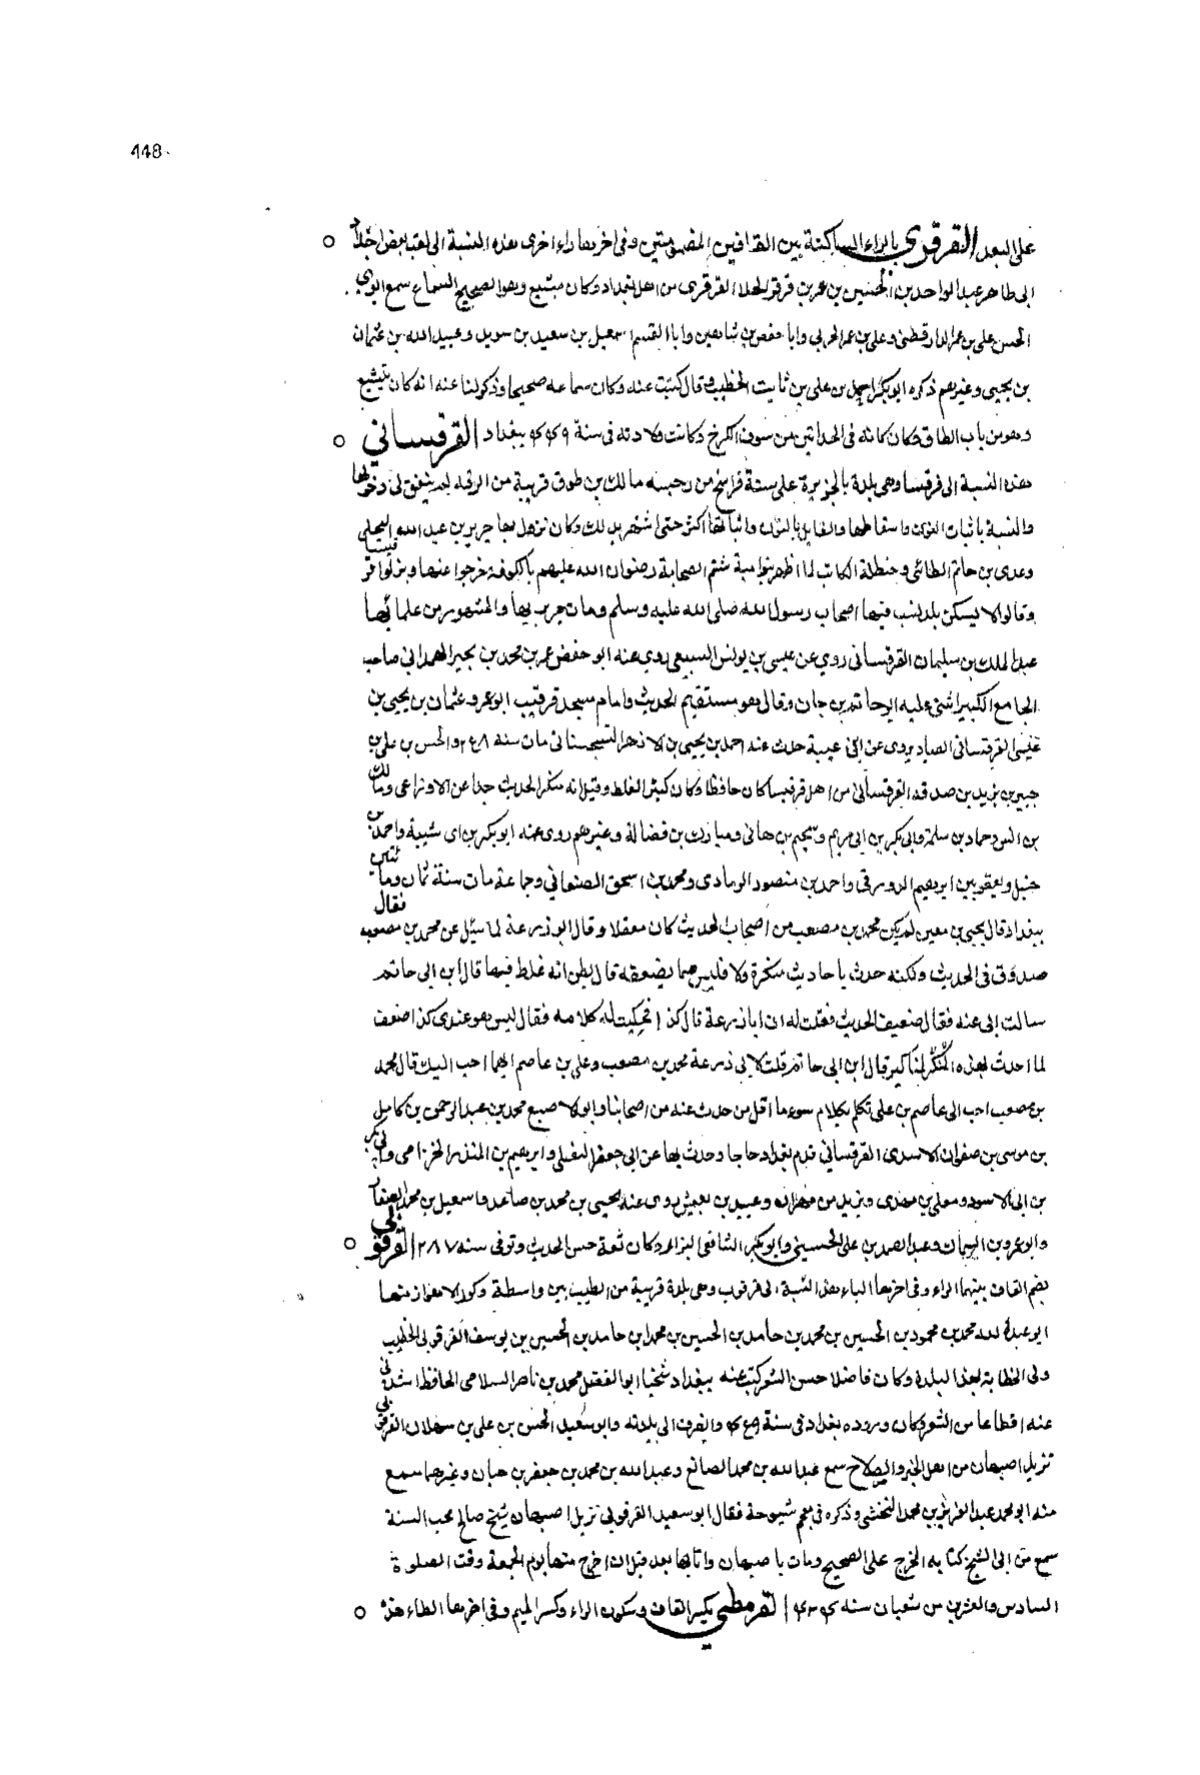 448
على البعد القرقري بالراء الساكنة بين القافين المضمومتين وفي اخرها راء اخرى هذه النسبة الى لقب بعض اجداد
ابى طاهر عبد الواحد بن الحسين بن عمر بن قرقر الحذاء القرقرى من اهل بغداد وكان متشيع وهو الصحيح السماع سمع ابوى
الحسن على بن عمر الدارقطنى وعلى بن عمر الحربي وابا حفص بن شاهين وابا القسم اسمعيل بن سعيد بن سويد وعبيد الله بن عثمان
بن يحيى وغيرهم ذكره ابو بكر احمد بن على بن ثابت الخطيب وقال كتبت عنه وكان سماعه صحيحا وذكر لنا عنه انه كان يتشيع
وهو من باب الطاق وكان دكانه فى الحذائين من سوق الكرخ وكانت ولادته فى سنة ببغداد القرقساني
هذه النسبة الى قرقيسا وهى بلدة بالجزيرة على ستة فراسخ من رحبة مالك بن طوق قريبة من الرقه لم يتفق لى دخولها
والنسبة باثبات النون واسقاطها والقايل بالنون واثباتها اكثر حتى اشتهر بذلك وكان نزل بها جرير بن عبد الله البجلى
وعدى بن حاتم الطائى وحنظلة الكاتب لما اظهر بنو امية شتم الصحابة رضوان الله عليهم بالكوفة خرجوا عنها ونزلوا قرقيسيا
وقالوا لا نسكن بلد يسب فيها اصحاب رسول الله صلى الله عليه وسلم ومات جرير بها والمشهور من علمائها
عبد الملك بن سليمان القرقسانى روي عن عيسى بن يونس السبيعى روى عنه ابو حفص عمر بن محمد بن بجير الهمدانى صاحب
الجامع الكبير اثنى عليه ابو حاتم بن حبان وقال هو مستقيم الحديث وامام مسجد قرقيسيا ابو عمرو عثمان بن يحيى بن
عيسى القرقسانى الصياد يروى عن ابن عيينة حدث عنه احمد بن يحيى بن الازهر السجستانى مات سنه ٢٤٨ والحسن بن على بن
جبير بن يزيد بن صدقه القرقسانى من اهل قرقيسا كان حافظا وكان كثير الغلط وقيل انه منكر الحديث حدث عن الاوزاعى ومالك
بن انس وحماد بن سلمة وابى بكر بن ابى مريم وبن هانى ومبارك بن فضالة وغيرهم روى عنه ابو بكر بن ابى شيبة واحمد بن
حنبل ويعقوب بن ابرهيم الدورقى واحمد بن منصور الرمادى ومحمد بن اسحق الصنعانى وجماعة مات سنة ثمان ومائتين
ببغداد قال يحيى بن معين لم يكن محمد بن مصعب من اصحاب الحديث كان مغفلا وقال ابو زرعة لما سئل عن محمد بن مصعب فقال
صدوق فى الحديث ولكنه حدث باحاديث منكرة قال يظن انه غلط فيها قال ابن ابى حاتم
سالت ابى عنه فقال ضعيف الحديث فقلت له ان ابا زرعة قال كذا فحكيت له كلامه فقال ليس هو عندى كذا ضعف
لما حدث بهذه المناكير قال ابن ابى حاتم قلت لابى زرعة محمد بن مصعب وعلى بن عاصم ايهما احب اليك قال محمد
بن مصعب احب الى عاصم بن على تكلم بكلام سوء ما اقل من حدث عنه من اصحابنا وابو الاصبغ محمد بن عبد الرحمن بن كامل
بن موسى بن صفوان الاسدى القرقسانى قدم بغداد حاجا وحدث بها عن ابى جعفر النفيلى وابرهيم بن المنذر الخزامى وابى بكر
بن ابى الاسود ومعلى بن مهدى ويزيد بن مهران وعبيد بن يعيش روى عنه يحيى بن محمد بن صاعد واسمعيل بن محمد الصفار
وابو عمرو بن السماك وعبد الصمد بن على الحسينى وابو بكر الشافعى البزاز وكان ثقة حسن الحديث وتوفى سنه ٢٨٧ القرقوبي
بضم القاف بينهما الراء وفى اخرها الباء هذه النسبة الى قرقوب وهى بلدة قريبة من الطيب بين واسطة وكور الاهواز منها
ابو عبد الله محمد بن محمود بن الحسين بن محمد بن حامد بن الحسين بن محمد ابن حامد بن الحسين بن يوسف القرقوبى الخطيب
ولى الخطابة بهذا البلدة وكان فاضلا حسن الشعر كتب عنه ببغداد شيخنا ابو الفضل محمد بن ناصر السلامى الحافظ انشدنى
عنه اقطاعا من الشعر وكان وروده بغداد فى سنة وانصرف الى بلدته وابو سعيد الحسن بن على بن سهلان القرقوبى
نزيل اصبهان من اهل الخير والصلاح سمع عبد الله بن محمد الصائغ وعبد الله بن محمد بن جعفر بن حيان وغيرهما سمع
منه ابو محمد عبد العزيز بن محمد النخشبى وذكره فى معجم شيوخه فقال ابو سعيد القرقوبى نزيل اصبهان شيخ صالح محب السنة
سمع من ابى الشيخ كتابه المخرج على الصحيح ومات باصبهان وانا بها بعد قبل ان اخرج منها يوم الجمعة وقت الصلوة
السادس والعشرين من شعبان سنه القرمطي بكسر القاف وسكون الراء وكسر الميم وفى اخرها الطاء هذه